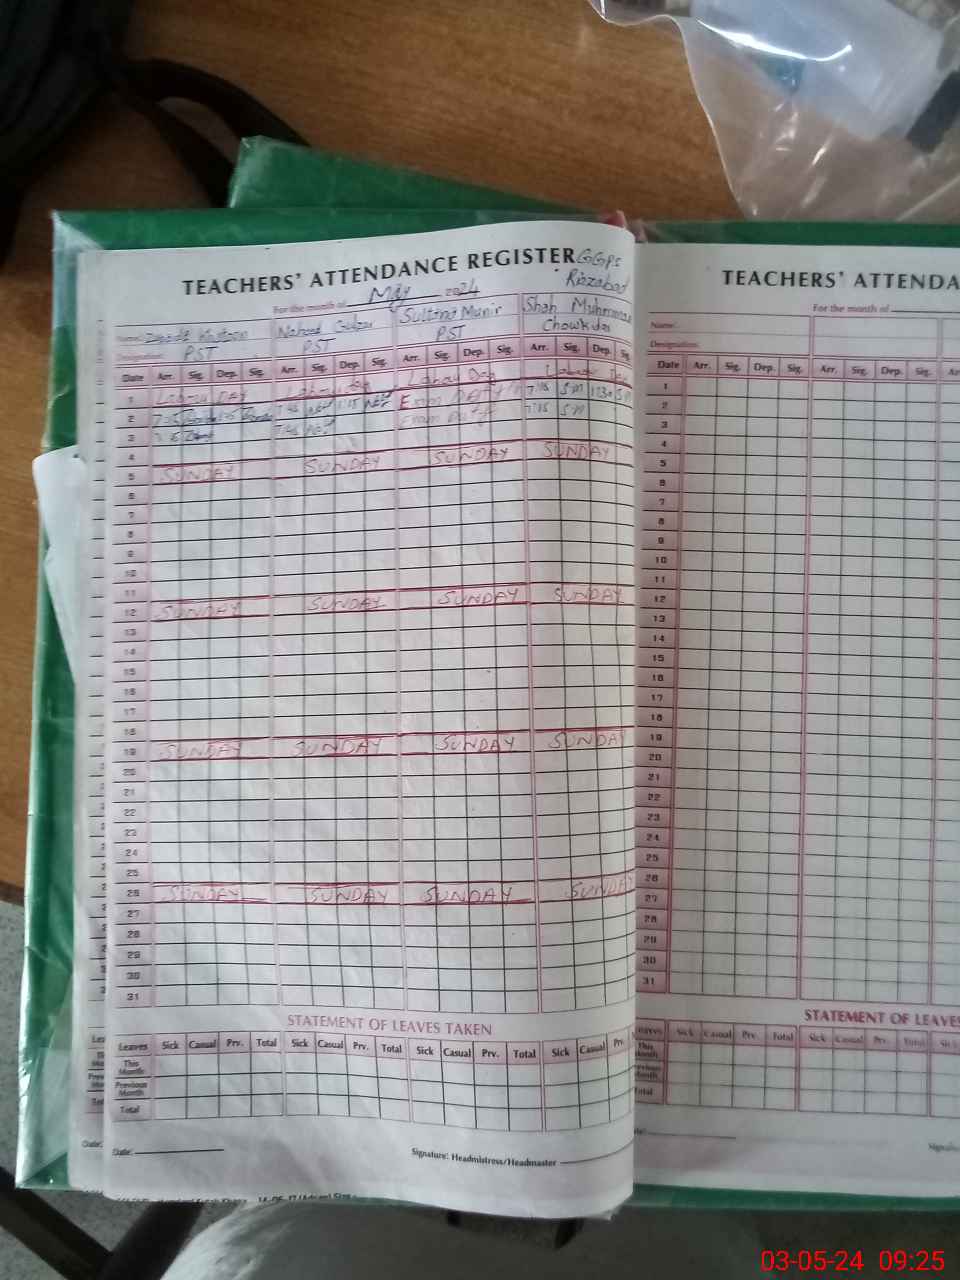 TEACHERS' ATTENDANCE REGISTER GGPS
For the month of May 2024 Riazabad
Name: Khatoon Naheed Gulzar Sultana Munir Shah Muhammad
Designation: PST PST PST Chowkidar
Date Arr. Sig. Dep. Sig. Arr. Sig. Dep. Sig. Arr. Sig. Dep. Sig. Arr. Sig. Dep. Sig.
1 Labour DAY Labour day Labour Day Labour Day
2 7:45 7:45 1:15 Exam DUTY 7:15 S.M 1:30 S.M
3 7:45 Exam Duty 7:15 S.M
4
5 SUNDAY SUNDAY SUNDAY SUNDAY
6
7
8
9
10
11
12 SUNDAY SUNDAY SUNDAY SUNDAY
13
14
15
16
17
18
19 SUNDAY SUNDAY SUNDAY SUNDAY
20
21
22
23
24
25
26 SUNDAY SUNDAY SUNDAY SUNDAY
27
28
29
30
31
STATEMENT OF LEAVES TAKEN
Leaves Sick Casual Prv. Total Sick Casual Prv. Total Sick Casual Prv. Total Sick Casual Prv.
This Month
Previous Month
Total
Date: Signature: Headmistress/Headmaster
TEACHERS' ATTENDA
For the month of
Name:
Designation:
Date Arr. Sig. Dep. Sig. Arr. Sig. Dep. Sig.
1
2
3
4
5
6
7
8
9
10
11
12
13
14
15
16
17
18
19
20
21
22
23
24
25
26
27
28
29
30
31
STATEMENT OF LEAVES
Leaves Sick Casual Prv. Total Sick Casual Prv. Total Sick
This Month
Previous Month
Total
03-05-24 09:25